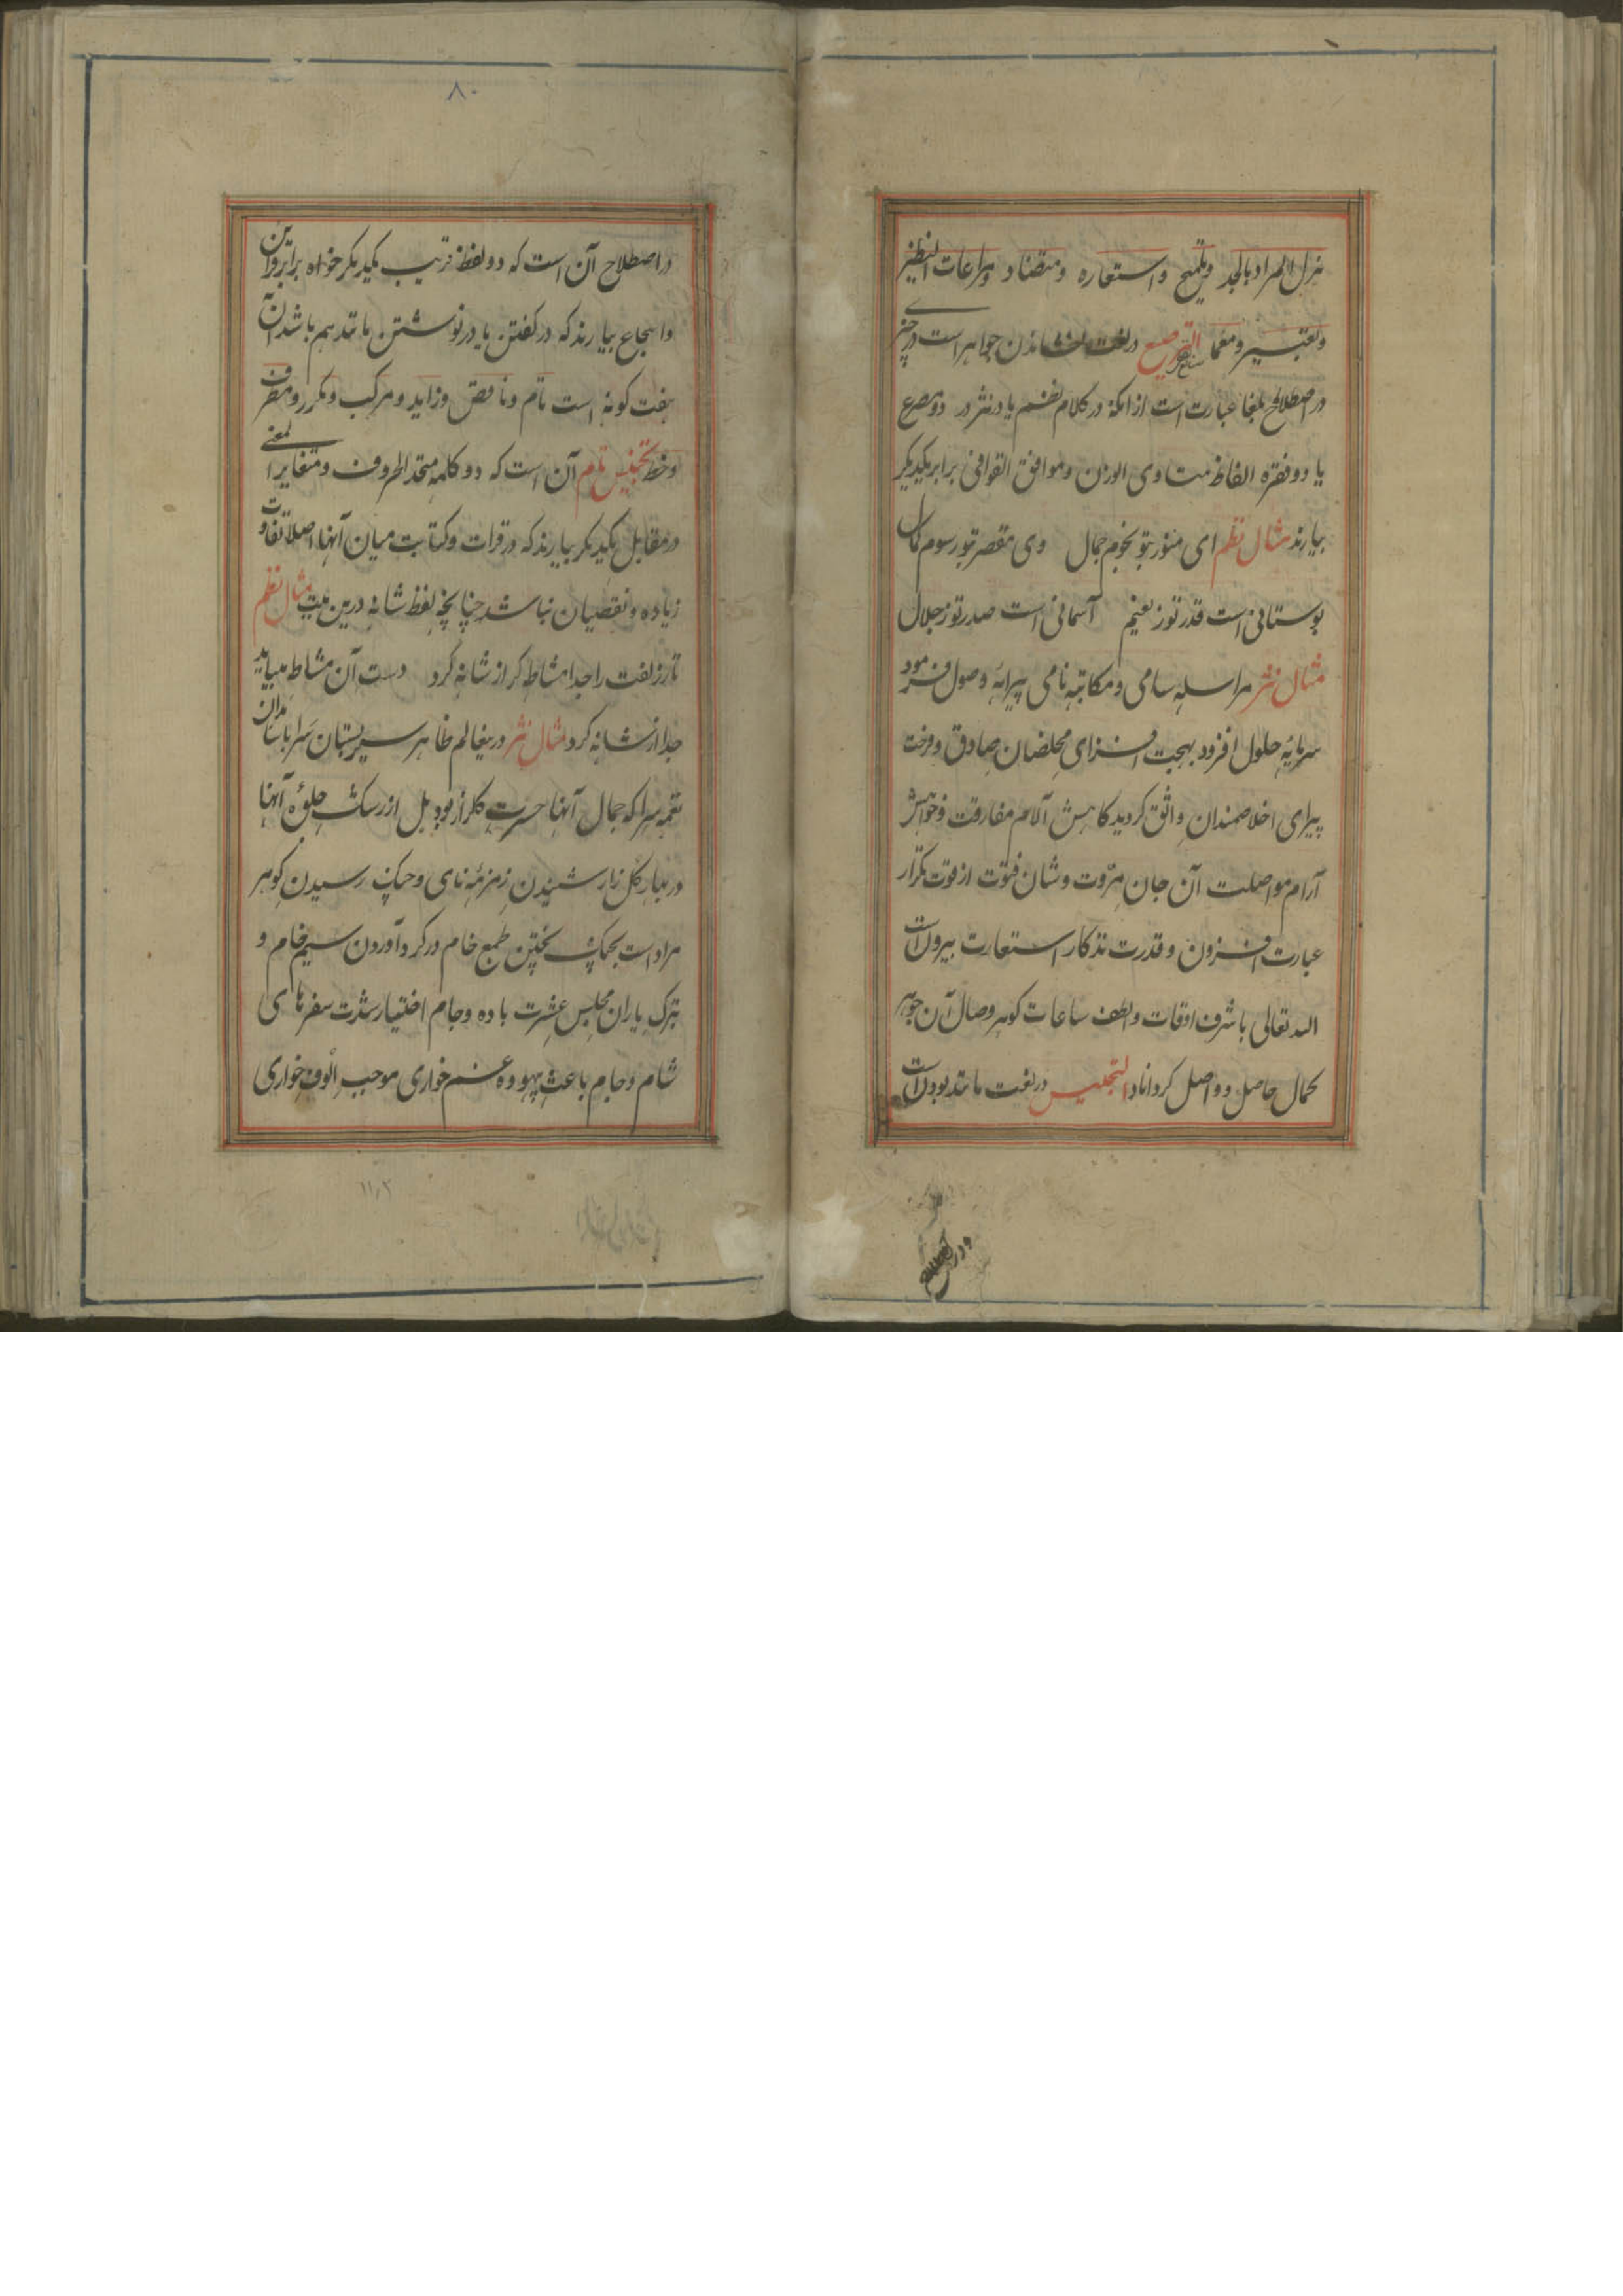 هزل المراد بالجد و تلمیح و استعاره و متضاد و مراعات النظیر
و تعبیر و معما الترصیع در لغت نشاندن جواهر است در چیزی
در اصطلاح بلغا عبارت است از انکه در کلام نظم یا در نثر در دو مصرع
یا دو فقره الفاظ متساوی الوزن و موافق القوافی برابر یکدیگر
بیارند مثال نظم ای منور بتو نجوم جمال وی مقصر بتو رسوم کمال
بوستانی است قدر تو ز نعیم آسمانی است صدر تو ز جلال
مثال نثر مراسله سامی و مکاتبه نامی پیرایه وصول فرمود
سرمایه حلول افزود بهجت افزای مخلصان صادق و فرحت
پیرای اخلاصمندان واثق کردید کاهش آلام مفارقت و خواهش
آرام مواصلت آن جان مروت و شان فتوت از قوت تکرار
عبارت افزون و قدرت تذکار استعارت بیرون است
الله تعالی باشرف اوقات و الطف ساعات کوهر وصال آن جوهر
کمال حاصل و واصل کرداناد التجنیس در لغت مانند بودن است
۸۰
در اصطلاح آن است که دو لفظ قریب یکدیکر خواه برابر قراین
و اسجاع بیارند که در کفتن یا در نوشتن مانند هم باشد آن
هفت کونه است تام و ناقص و زاید و مرکب و مکرر و مطرف
و خط تجنیس تام آن است که دو کلمه متحد الحروف و متغایر المعنی
در مقابل یکدیکر بیارند که در قرات و کتابت میان آنها اصلا تفاوت
زیاده و نقصیان نباشد چنانچه لفظ شانه درین بیت مثال نظم
تار زلفت را جدا مشاط کر از شانه کرد دست آن مشاط میباید
جدا از شانه کرد مثال نثر درینعالم ظاهر سیر بستان سرا باشاهدان
نغمه سرا که جمال آنها حسرت کلزار بود بل از رشک جلوه آنها
در بهار کل زار شنیدن زمزمه نای و چنک رسیدن کوهر
مراد است بچنک پختن طمع خام در کرد آوردن سیم خام و
بترک یاران مجلس عشرت باده و جام اختیار شدت سفرهای
شام و جام باعث بیهوده غم خواری موجب الوف خواری
۱۱۰۲